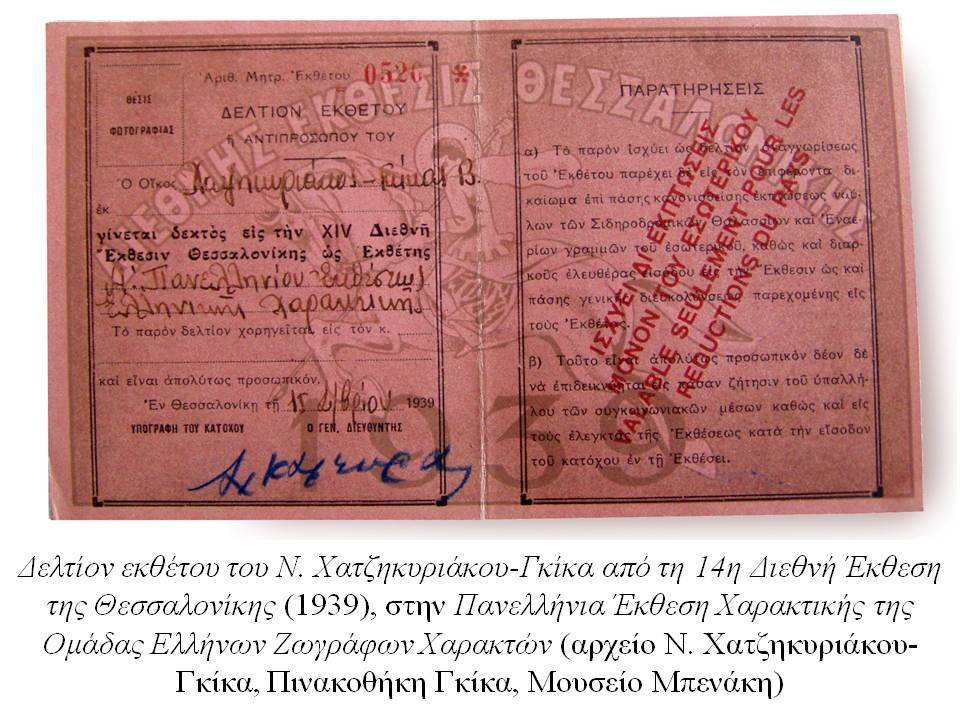 ΔΙΕΘΝΗΣ ΕΚΘΕΣΙΣ ΘΕΣΣΑΛΟΝΙΚΗΣ
1939
Ἀριθ. Μητρ. Ἐκθέτου 0526 *
ΘΕΣΙΣ
ΦΩΤΟΓΡΑΦΙΑΣ
ΔΕΛΤΙΟΝ ΕΚΘΕΤΟΥ
ἢ ΑΝΤΙΠΡΟΣΩΠΟΥ ΤΟΥ
Ὁ Οἶκος Χατζηκυριάκος-Γκίκας Β.
ἐκ
γίνεται δεκτὸς εἰς τὴν XIV Διεθνῆ
Ἔκθεσιν Θεσσαλονίκης ὡς Ἐκθέτης
Α' Πανελληνίου Ἐκθέσεως
Ἑλληνικῆς Χαρακτικῆς
Τὸ παρὸν δελτίον χορηγεῖται εἰς τὸν κ.
καὶ εἶναι ἀπολύτως προσωπικόν.
Ἐν Θεσσαλονίκῃ τῇ 15 1939
ΥΠΟΓΡΑΦΗ ΤΟΥ ΚΑΤΟΧΟΥ Ο ΓΕΝ. ΔΙΕΥΘΥΝΤΗΣ
ΠΑΡΑΤΗΡΗΣΕΙΣ
α) Τὸ παρὸν ἰσχύει ὡς δελτίον ἀναγνωρίσεως
τοῦ Ἐκθέτου παρέχει δὲ εἰς τὸν ἐπιφέροντα δι-
καίωμα ἐπὶ πάσης κανονισθείσης ἐκπτώσεως ναύ-
λων τῶν Σιδηροδρομικῶν, Θαλασσίων καὶ Ἐναε-
ρίων γραμμῶν τοῦ ἐσωτερικοῦ, καθὼς καὶ διαρ-
κοῦς ἐλευθέρας εἰσόδου εἰς τὴν Ἔκθεσιν ὡς καὶ
πάσης γενικῆς διευκολύνσεως παρεχομένης εἰς
τοὺς Ἐκθέτας.
β) Τοῦτο εἶναι ἀπολύτως προσωπικὸν δέον δὲ
νὰ ἐπιδεικνύηται εἰς πᾶσαν ζήτησιν τοῦ ὑπαλλή-
λου τῶν συγκοινωνιακῶν μέσων καθὼς καὶ εἰς
τοὺς ἐλεγκτὰς τῆς Ἐκθέσεως κατὰ τὴν εἴσοδον
τοῦ κατόχου ἐν τῇ Ἐκθέσει.
ΙΣΧΥΕΙ ΔΙ' ΕΚΠΤΩΣΕΙΣ
ΜΟΝΟΝ ΤΟΥ ΕΣΩΤΕΡΙΚΟΥ
VALABLE SEULEMENT POUR LES
REDUCTIONS DU PAYS
Δελτίον εκθέτου του Ν. Χατζηκυριάκου-Γκίκα από τη 14η Διεθνή Έκθεση
της Θεσσαλονίκης (1939), στην Πανελλήνια Έκθεση Χαρακτικής της
Ομάδας Ελλήνων Ζωγράφων Χαρακτών (αρχείο Ν. Χατζηκυριάκου-
Γκίκα, Πινακοθήκη Γκίκα, Μουσείο Μπενάκη)